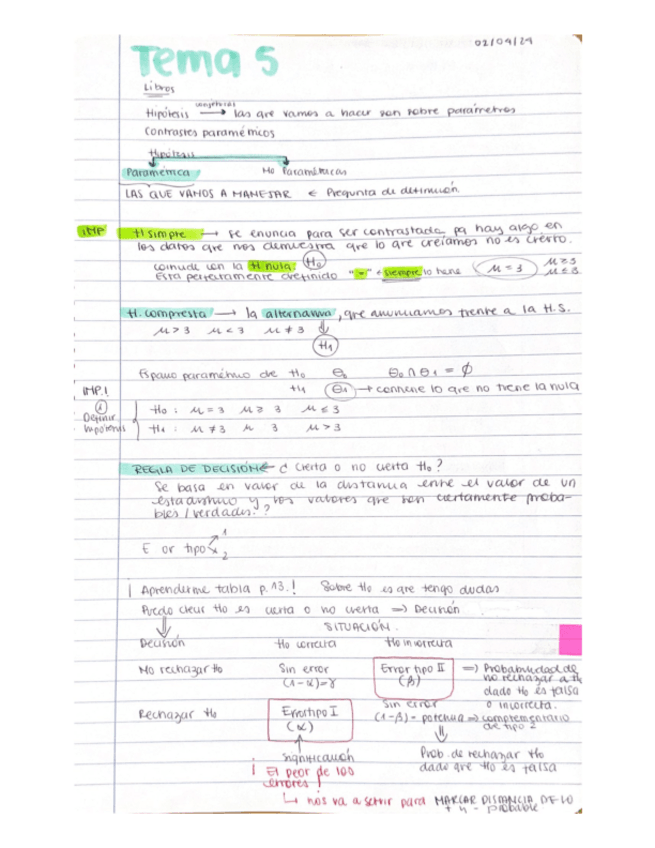 02/04/24
Tema 5
Libros
conjeturas
Hipótesis → las que vamos a hacer son sobre parámetros
Contrastes paramétricos
Hipótesis
Paramétrica No Paramétricas
LAS QUE VAMOS A MANEJAR ← Pregunta de definición.
IMP H simple → se enuncia para ser contrastada, pq hay algo en
los datos que nos demuestra que lo que creíamos no es cierto.
coincide con la H nula. H₀
Está perfectamente definido "=" + siempre lo tiene μ = 3 μ ≥ 3 μ ≤ 3
H. compuesta → la alternativa, que anunciamos frente a la H.S.
μ > 3 μ < 3 μ ≠ 3
H₁
Espacio paramétrico de H₀ Θ₀ Θ₀ ∩ Θ₁ = ∅
H₁ Θ₁ → contiene lo que no tiene la nula
IMP.!
① Definir hipótesis
H₀ : μ = 3 μ ≥ 3 μ ≤ 3
H₁ : μ ≠ 3 μ 3 μ > 3
REGLA DE DECISIÓN ¿ Cierta o no cierta H₀ ?
Se basa en valor de la distancia entre el valor de un
estadístico y los valores que son ciertamente proba-
bles / verdades. ?
E or tipo 1
2
¡ Aprenderme tabla p. 13. ! Sobre H₀ es que tengo dudas
Puedo creer H₀ es cierta o no cierta ⇒ Decisión
SITUACIÓN.
Decisión H₀ correcta H₀ incorrecta
No rechazar H₀ Sin error Error tipo II ⇒ Probabilidad de
(1-α)=γ (β) no rechazar a H₀
dado H₀ es falsa
o incorrecta.
Rechazar H₀ Error tipo I Sin error
(α) (1-β) = potencia ⇒ complementario
de tipo 2
Significación Prob. de rechazar H₀
dado que H₀ es falsa
¡ El peor de los
errores !
↳ nos va a servir para MARCAR DISTANCIA DE LO
+ y - probable